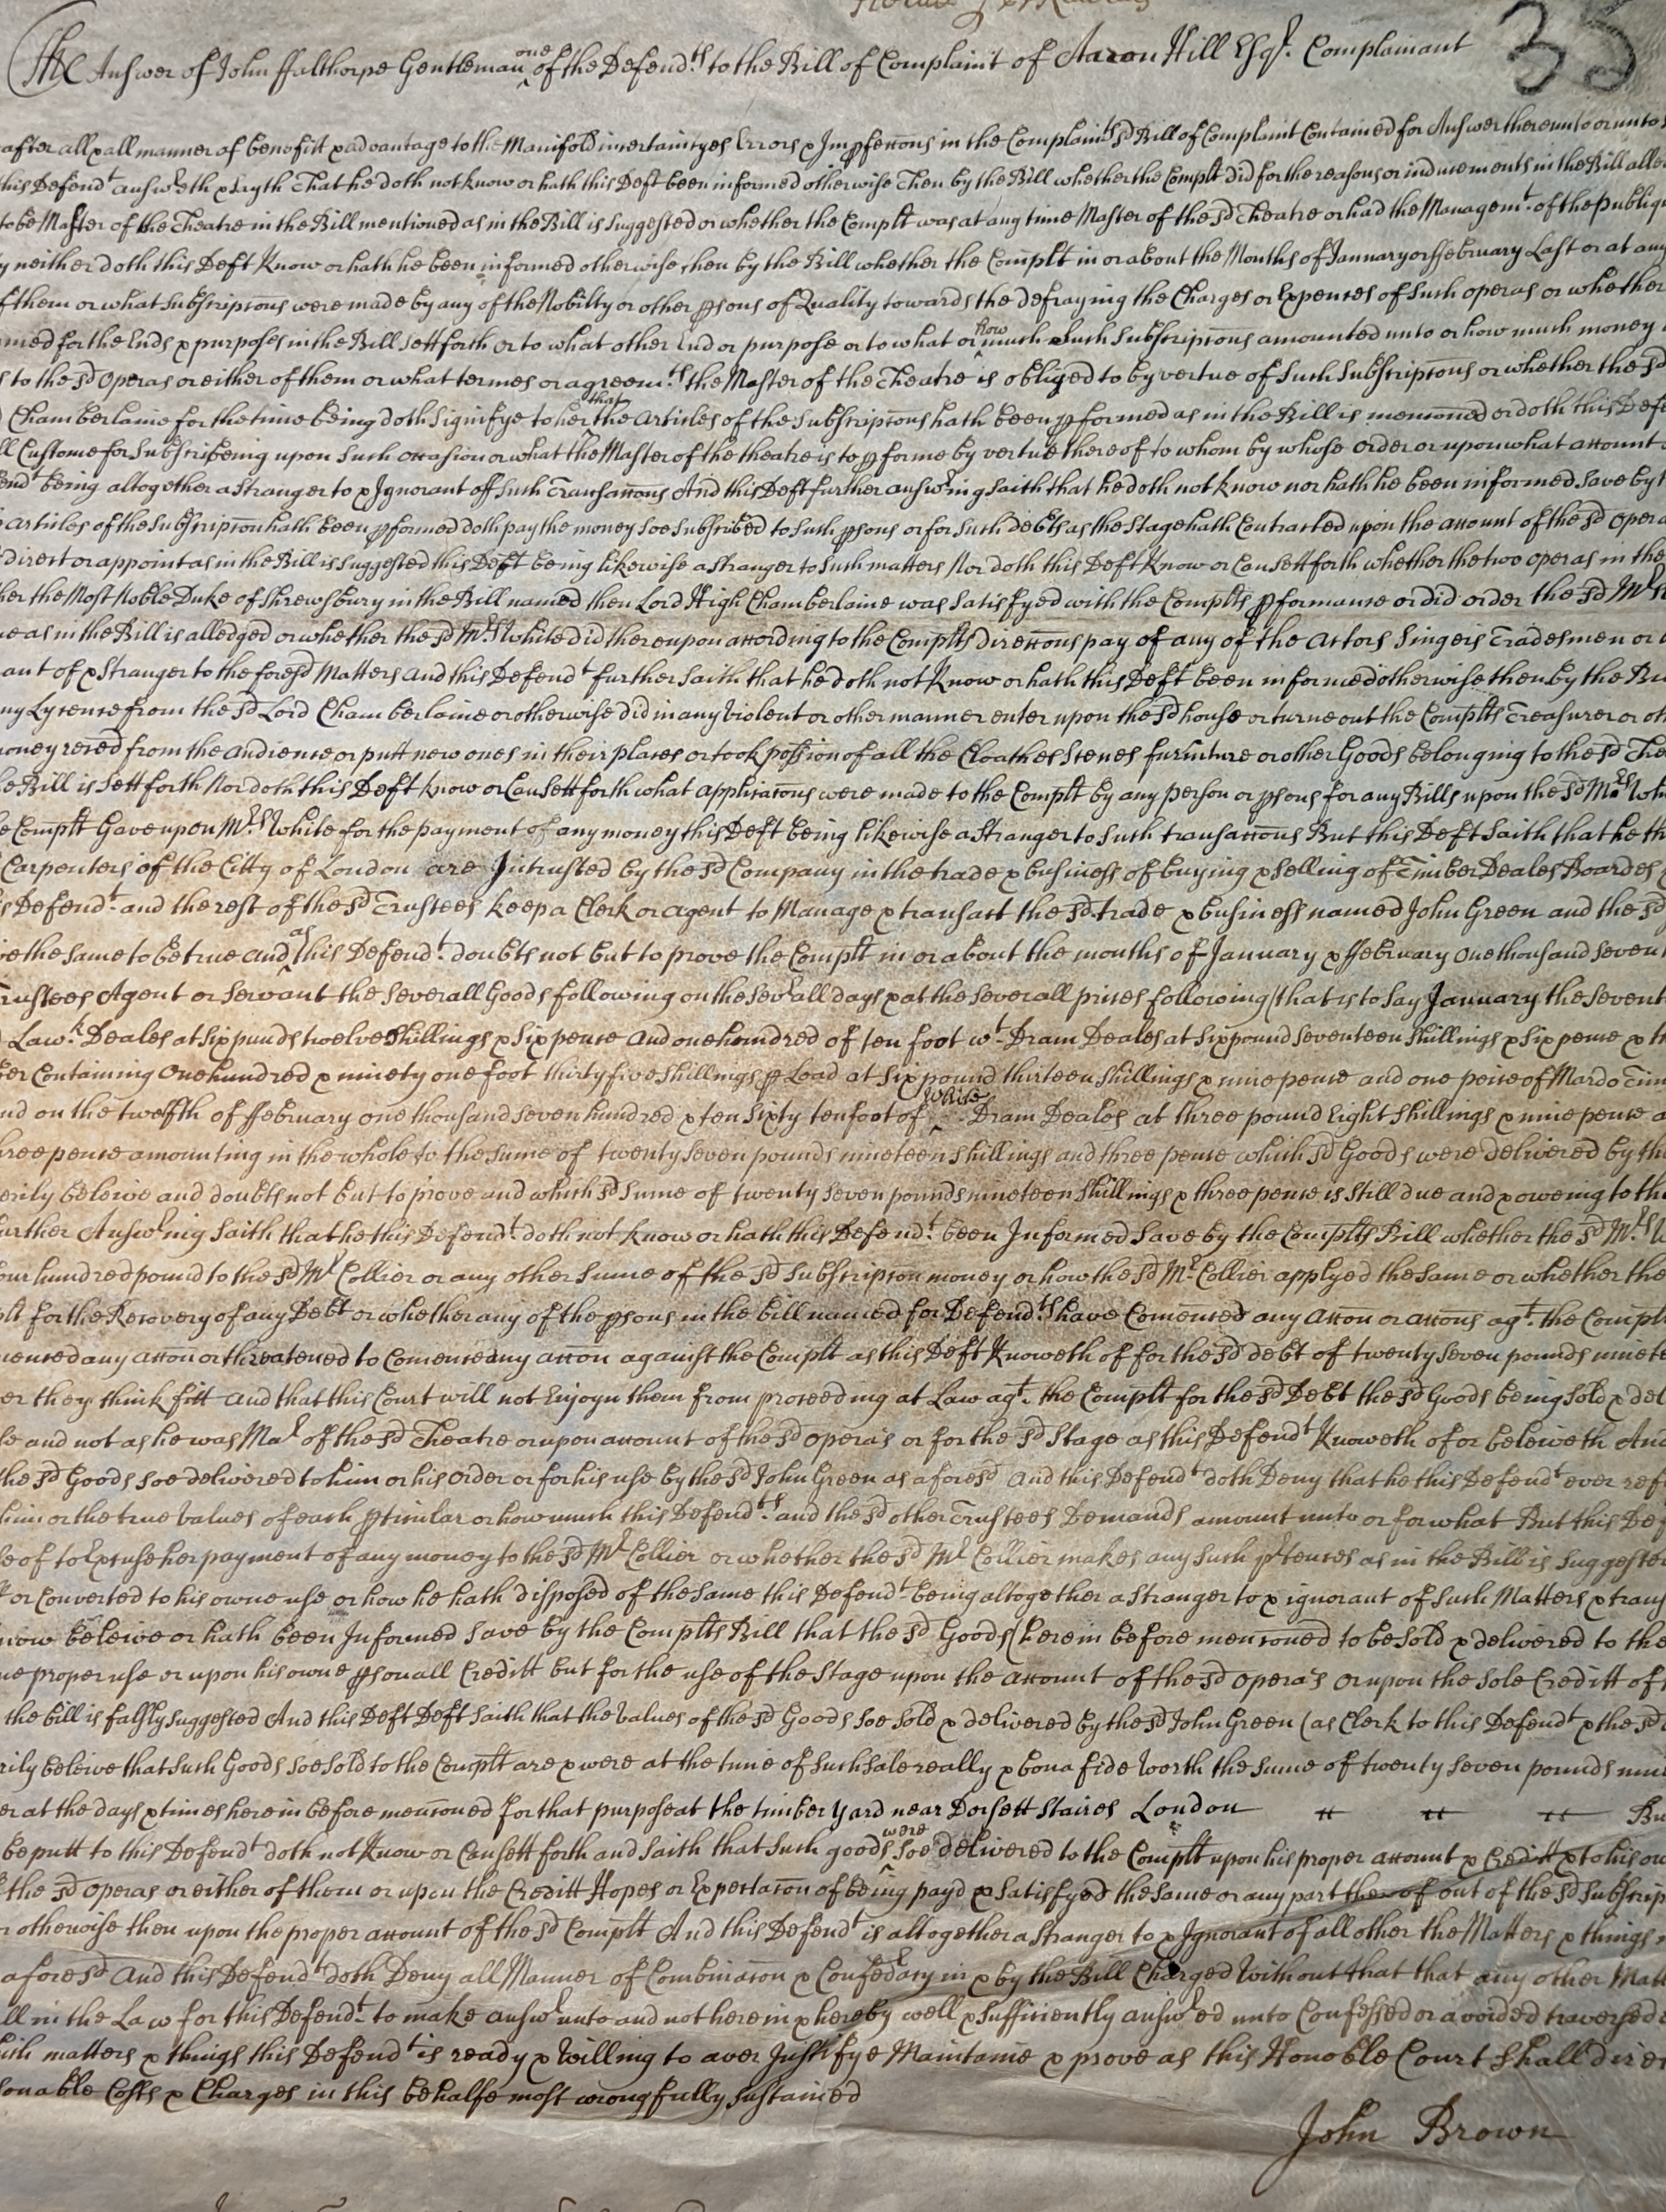 The Answer of John ffalthorpe Gentleman one of the Defend.ts to the Bill of Complaint of Aaron Hill Esq.r Complainant
35
after all & all manner of benefitt & advantage to the Manifold incertaintyes Errors & Imp̱feccons in the Complain.ts s.d Bill of Complaint Contained for Answer thereunto or unto
this Defend.t answ.reth & sayth That he doth not know or hath this Deft been informed otherwise then by the Bill whether the Complt did for the reasons or inducements in the Bill alle
to be Master of the Theatre in the Bill mentioned as in the Bill is suggested or whether the Complt was at any time Master of the s.d Theatre or had the Managem.t of the publiq
y neither doth this Deft Know or hath he been informed otherwise then by the Bill whether the Complt in or about the Months of January or ffebruary Last or at any
f them or what Subscripcons were made by any of the Nobilty or other p̱sons of Quality towards the defraying the Charges or Expences of such operas or whether
med for the Ends & purposes in the Bill sett forth or to what other End or purpose or to what or how much such Subscripcons amounted unto or how much money
s to the s.d Operas or either of them or what termes or agreem.ts the Master of the Theatre is obliged to by vertue of such Subscripcons or whether the s.d
Chamberlaine for the time being doth Signifye to her that the Articles of the Subscripcons hath been p̱formed as in the Bill is menconed or doth this Defe
ll Custome for Subscribeing upon such occasion or what the Master of the theatre is to p̱forme by vertue thereof to whom by whose order or upon what account
end.t being altogether a Stranger to & Ignorant off such Transaccons And this Deft further answ.ring saith that he doth not know nor hath he been informed Save by t
articles of the Subscripcon hath been p̱formed doth pay the money soe subscribed to such p̱sons or for such debts as the Stage hath Contracted upon the account of the s.d opera
direct or appoint as in the Bill is suggested this Deft being likewise a stranger to such matters Nor doth this Deft Know or Can sett forth whether the two operas in the
her the Most Noble Duke of Shrewsbury in the Bill named then Lord High Chamberlaine was Satisfyed with the Complts p̱formance or did order the s.d M.rs
ue as in the Bill is alledged or whether the s.d M.rs White did thereupon according to the Complts direccons pay of any of the Actors Singers Tradesmen or
ant of & Stranger to the fores.d Matters And this Defend.t further saith that he doth not Know or hath this Deft been informed otherwise then by the Bi
ny Lycence from the s.d Lord Chamberlaine or otherwise did in any violent or other manner enter upon the s.d house or turne out the Complts Treasurer or oth
money reced from the audience or putt new ones in their places or took possion of all the Cloathes Scenes furniture or other Goods belonging to the s.d The
he Bill is sett forth Nor doth this Deft know or Can sett forth what applicacons were made to the Complt by any person or p̱sons for any Bills upon the s.d M.rs Whi
e Complt Gave upon M.rs White for the payment of any money this Deft being likewise a Stranger to such transaccons But this Deft saith that he th
Carpenters of the Citty of London are Intrusted by the s.d Company in the trade & business of buying & selling of Timber Deales Boardes
s Defend.t and the rest of the s.d Trustees keep a Clerk or agent to Manage & transact the s.d trade & business named John Green and the s.d
ve the same to be true and as this Defend.t doubts not but to prove the Complt in or about the months of January & ffebruary One thousand seven
Trustees Agent or Servant the severall Goods following on the sev.rall days & at the severall prices following (that is to say January the sevent
Law.k Deales at six punds twelve shillings & six pence And one hundred of ten foot w.t Dram Deales at six pound seventeen shillings & six pence & t
er Containing One hundred & ninety one foot thirty five shillings p̱ Load at six pound thirteen shillings & nine pence and one peice of Mardo Tim
nd on the twelfth of ffebruary one thousand seven hundred & ten sixty ten foot of white Dram Deales at three pound Eight shillings & nine pence a
hree pence amounting in the whole to the sume of twenty seven pounds nineteen shillings and three pence which s.d Goods were delivered by th
erily beleive and doubts not but to prove and which s.d sume of twenty seven pounds nineteen shillings & three pence is still due and & oweing to th
urther Answ.ring saith that he this Defend.t doth not know or hath this Defend.t been Informed Save by the Complts Bill whether the s.d M.rs W
our hundred pound to the s.d M.r Collier or any other sume of the s.d subscripcon money or how the s.d M.r Collier applyed the same or whether the
plt for the Recovery of any Debt or whether any of the p̱sons in the bill named for Defend.ts have Comenced any accon or accons ag.t the Compl
menced any accon or threatened to Comence any accon against the Complt as this Deft Knoweth of for the s.d debt of twenty seven pounds ninete
er they think fitt and that this Court will not Enjoyn them from proceeding at Law ag.t the Complt for the s.d Debt the s.d Goods being sold & del
se and not as he was Ma.r of the s.d Theatre or upon account of the s.d opera's or for the s.d Stage as this Defend.t Knoweth of or beleiveth And
the s.d Goods soe delivered to him or his order or for his use by the s.d John Green as afores.d And this Defend.t doth Deny that he this Defend.t ever ref
him or the true values of each p̱ticular or how much this Defend.ts and the s.d other Trustees Demands amount unto or for what But this Def
se of to Excuse her payment of any money to the s.d M.r Collier or whether the s.d M.r Collier makes any such p.rtences as in the Bill is suggested
or Converted to his owne use or how he hath disposed of the same this Defend.t being altogether a stranger to & ignorant of such Matters & trans
now beleive or hath been Informed save by the Complts Bill that the s.d Goods (herein before menconed to be sold & delivered to the
ne proper use or upon his owne p̱sonall Creditt but for the use of the Stage upon the account of the s.d Opera's or upon the sole Creditt of
the bill is falsly suggested And this Deft Deft saith that the values of the s.d Goods soe sold & delivered by the s.d John Green (as Clerk to this Defend.t & the s.d
rily beleive that such Goods soe sold to the Complt are & were at the time of such sale really & bona fide worth the sume of twenty seven pounds nine
er at the days & times herein before menconed for that purpose at the timber yard near Dorsett Staires London Bu
be putt to this Defend.t doth not Know or Can sett forth and saith that such goods were soe delivered to the Complt upon his proper account & Creditt & to his ow
the s.d operas or either of them or upon the Creditt Hopes or Expectacon of being payd & satisfyed the same or any part thereof out of the s.d subscrip
r otherwise then upon the proper account of the s.d Complt And this Defend.t is altogether a stranger to & Ignorant of all other the Matters & things
afores.d And this Defend.t doth Deny all Manner of Combinacon & Confed.racy in & by the Bill Charged Without that that any other Matt
ll in the Law for this Defend.t to make answ.r unto and not herein & hereby well & sufficiently answ.red unto Confessed or avoided traversed
hich matters & things this Defend.t is ready & willing to aver Justifye Maintaine & prove as this Honoble Court shall direc
sonable Costs & Charges in this behalfe most wrongfully sustained
John Brown